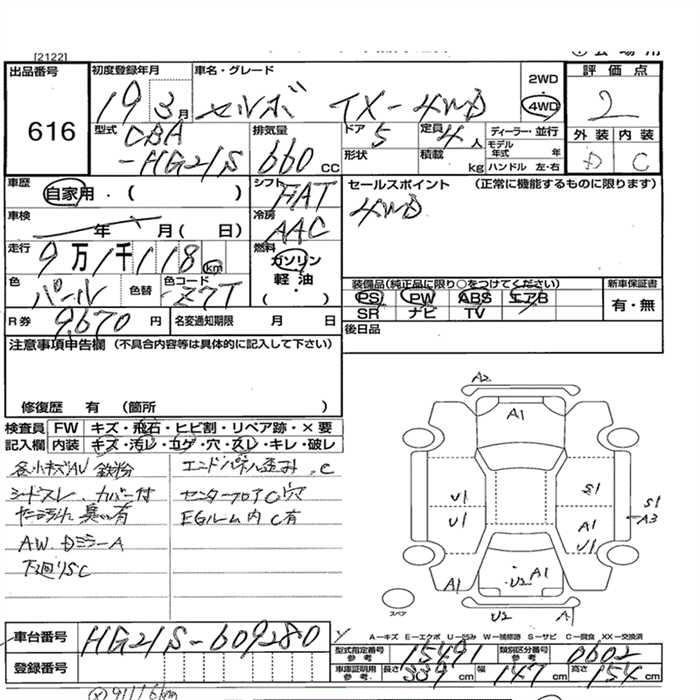 [2122]
出品番号 初度登録年月 車名・グレード 2WD 評価点
616 19 3月 セルボ TX-4WD 4WD 2
型式 排気量 ドア 5 定員 4人 ディーラー・並行 外装 内装
CBA 形状 積載 kg モデル年式 年 D C
-HG21S 660cc ハンドル 左・右
車歴 自家用・( ) シフト FAT セールスポイント (正常に機能するものに限ります)
車検 年 月( 日) 冷房 AAC 4WD
走行 9万1千118km 燃料 ガソリン
色 パール 色替 色コード Z7T 軽油・( ) 装備品(純正品に限り○をつけてください) 新車保証書
PS PW ABS エアB 有・無
SR ナビ TV
R券 9,670円 名変通知期限 月 日 後日品
注意事項申告欄 (不具合内容等は具体的に記入して下さい)
修復歴 有 (箇所 )
検査員 FW キズ・飛石・ヒビ割・リペア跡・×要
記入欄 内装 キズ・汚レ・コゲ・穴・スレ・キレ・破レ
各小キズAU 鉄粉 エンドパネル歪み.C
シートスレ、カバー付 センターフロアC穴
臭い有 EGルーム内C有
AW.DミラーA
下廻りSC
A2
A1
U1 S1
U1 A1 S1
U1 A3
A1 U2 A1 A1
スペア U2 A1
A-キズ E-エクボ U-凹み W-補修跡 S-サビ C-腐食 XX-交換済
車台番号 HG21S-609280
型式指定番号 参考 15491 類別区分番号 参考 0602
登録番号 車庫証明 参考 長さ 339cm 幅 147cm 高さ 154cm
91116km